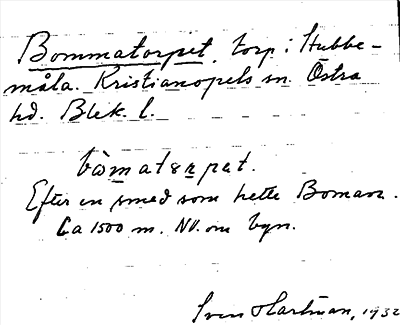 Bommatorpet, torp i Hubbe-
måla. Kristianopels sn. Östra
hd. Blek. l.
båmatørpet.
Efter en smed som hette Boman.
Ca 1500 m. NV. om byn.
Sven Hartman, 1932